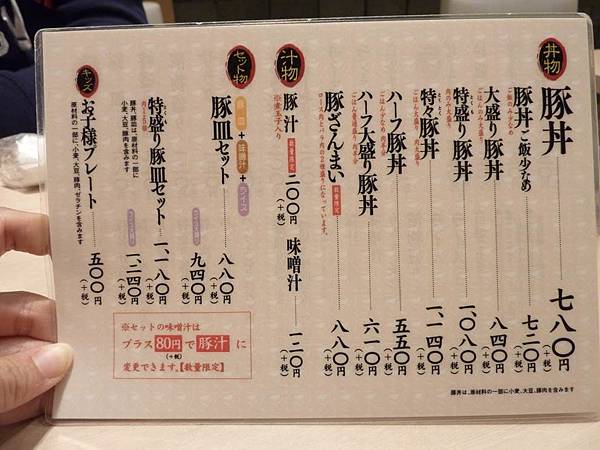 丼物
豚丼 七八〇円(+税)
豚丼ご飯少なめ 七二〇円(+税)
ご飯のみ少なめ
大盛り豚丼 八四〇円(+税)
ごはんのみ大盛り
特盛り豚丼 一、〇八〇円(+税)
肉のみ大盛り
特々豚丼 一、一四〇円(+税)
とくとく
ごはん大盛り 肉大盛り
ハーフ豚丼 五五〇円(+税)
ごはん少なめ 肉半分
ハーフ大盛り豚丼 六一〇円(+税)
ごはん普通盛り 肉半分
豚ざんまい 数量限定 八八〇円(+税)
ロース肉とバラ肉の2種盛りになっています。
汁物
豚汁 数量限定 二〇〇円(+税)
※煮玉子入り
味噌汁 一二〇円(+税)
セット物
豚皿+味噌汁+ライス
豚皿セット 八八〇円(+税)
九四〇円(+税)
特盛り豚皿セット 一、一八〇円(+税)
一、二四〇円(+税)
豚丼、豚皿は、原材料の一部に
小麦、大豆、豚肉を含みます
キッズ
お子様プレート 五〇〇円(+税)
原材料の一部に、小麦、大豆、豚肉、ゼラチンを含みます
※セットの味噌汁は
プラス80円で豚汁に
(+税)
変更できます。【数量限定】
豚丼は、原材料の一部に小麦、大豆、豚肉を含みます